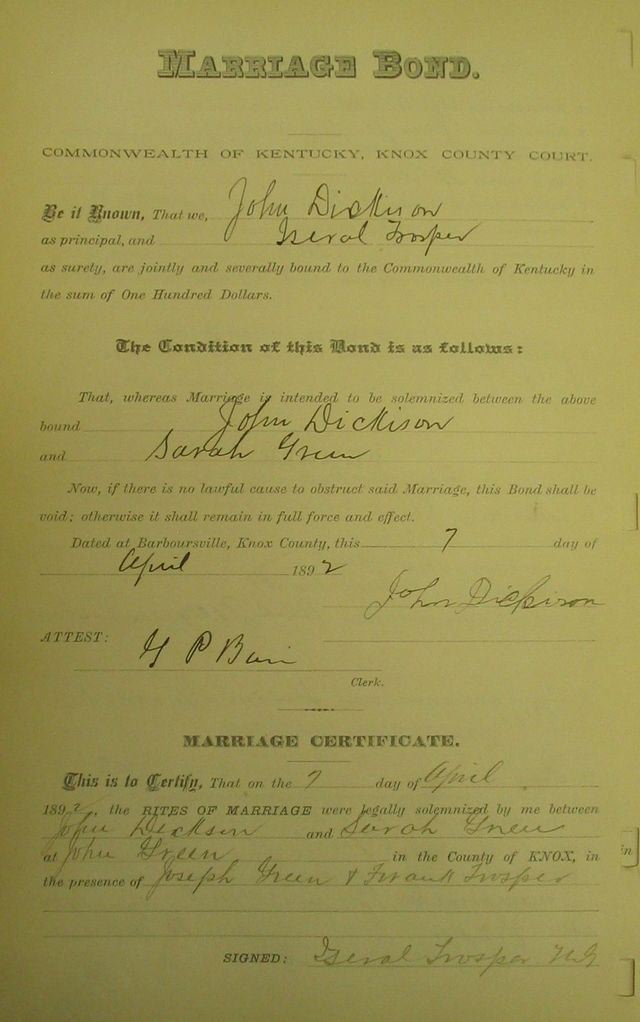 MARRIAGE BOND.
COMMONWEALTH OF KENTUCKY, KNOX COUNTY COURT.
Be it Known, That we, John Dickison
as principal, and Iseral Trosper
as surety, are jointly and severally bound to the Commonwealth of Kentucky in
the sum of One Hundred Dollars.
The Condition of this Bond is as follows:
That, whereas Marriage is intended to be solemnized between the above
bound John Dickison
and Sarah Green
Now, if there is no lawful cause to obstruct said Marriage, this Bond shall be
void; otherwise it shall remain in full force and effect.
Dated at Barboursville, Knox County, this 7 day of
April 1892
John Dickison
ATTEST:
G P Bain
Clerk.
MARRIAGE CERTIFICATE.
This is to Certify, That on the 7 day of April
1892, the RITES OF MARRIAGE were legally solemnized by me between
John Dickson and Sarah Green
at John Green in the County of KNOX, in
the presence of Joseph Green & Frank Trosper
SIGNED: Iseral Trosper